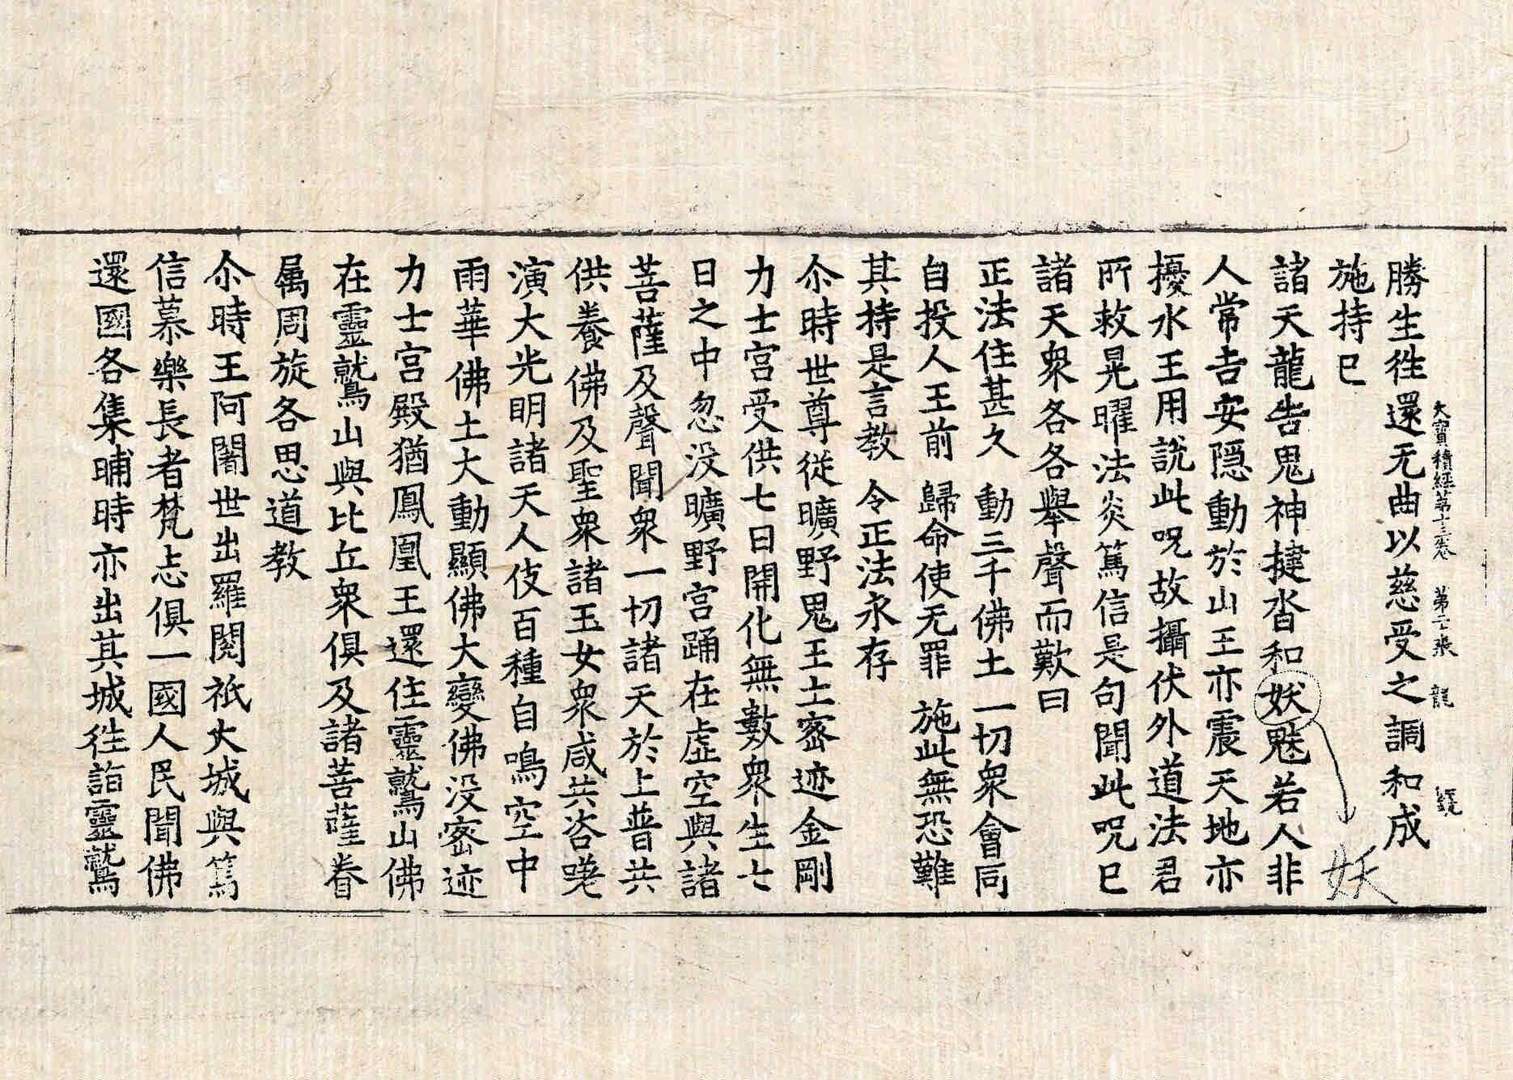 勝生往還无曲以慈受之調和成
施持已
大寶積經第十三卷 第二十張 龍
諸天龍告鬼神揵沓和妖魅若人非
妖
人常吉安隱動於山王亦震天地亦
擾水王用說此呪故攝伏外道法君
所敕晃曜法炎篤信是句聞此呪已
諸天衆各各舉聲而歎曰
正法住甚久 動三千佛土一切衆會同
自投人王前 歸命使无罪 施此無恐難
其持是言教 令正法永存
尒時世尊從曠野鬼王土密迹金剛
力士宮受供七日開化無數衆生七
日之中忽没曠野宮踊在虛空與諸
菩薩及聲聞衆一切諸天於上普共
供養佛及聖衆諸玉女衆咸共咨嗟
演大光明諸天人伎百種自鳴空中
雨華佛土大動顯佛大變佛没密迹
力士宮殿猶鳳凰王還住靈鷲山佛
在靈鷲山與比丘衆俱及諸菩薩眷
属周旋各思道教
尒時王阿闍世出羅閱祇大城與篤
信慕樂長者梵志俱一國人民聞佛
還國各集晡時亦出其城往詣靈鷲